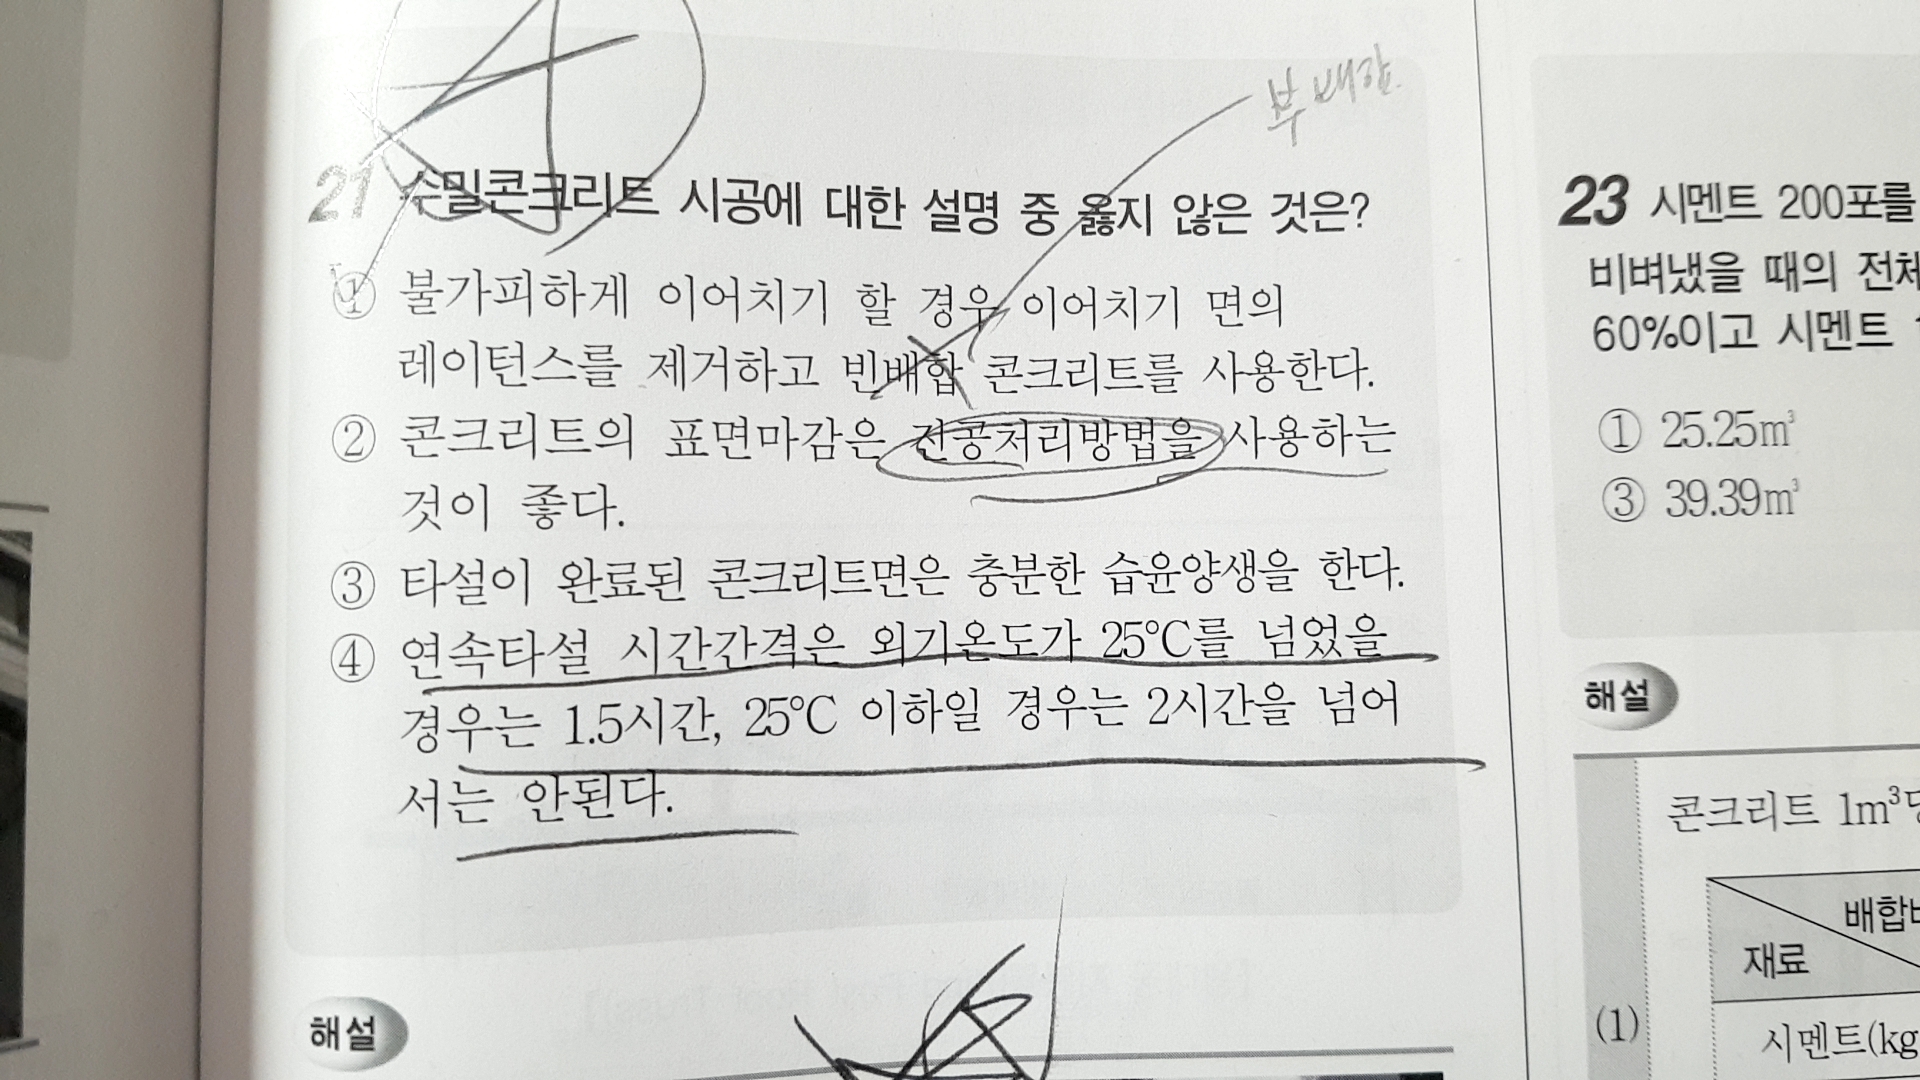 부배합
21 수밀콘크리트 시공에 대한 설명 중 옳지 않은 것은?
① 불가피하게 이어치기 할 경우 이어치기 면의
레이턴스를 제거하고 빈배합 콘크리트를 사용한다.
② 콘크리트의 표면마감은 진공처리방법을 사용하는
것이 좋다.
③ 타설이 완료된 콘크리트면은 충분한 습윤양생을 한다.
④ 연속타설 시간간격은 외기온도가 25℃를 넘었을
경우는 1.5시간, 25℃ 이하일 경우는 2시간을 넘어
서는 안된다.
해설
23 시멘트 200포를
비벼냈을 때의 전체
60%이고 시멘트
① 25.25m³
③ 39.39m³
해설
콘크리트 1m³당
배합비
재료
(1)
시멘트(kg